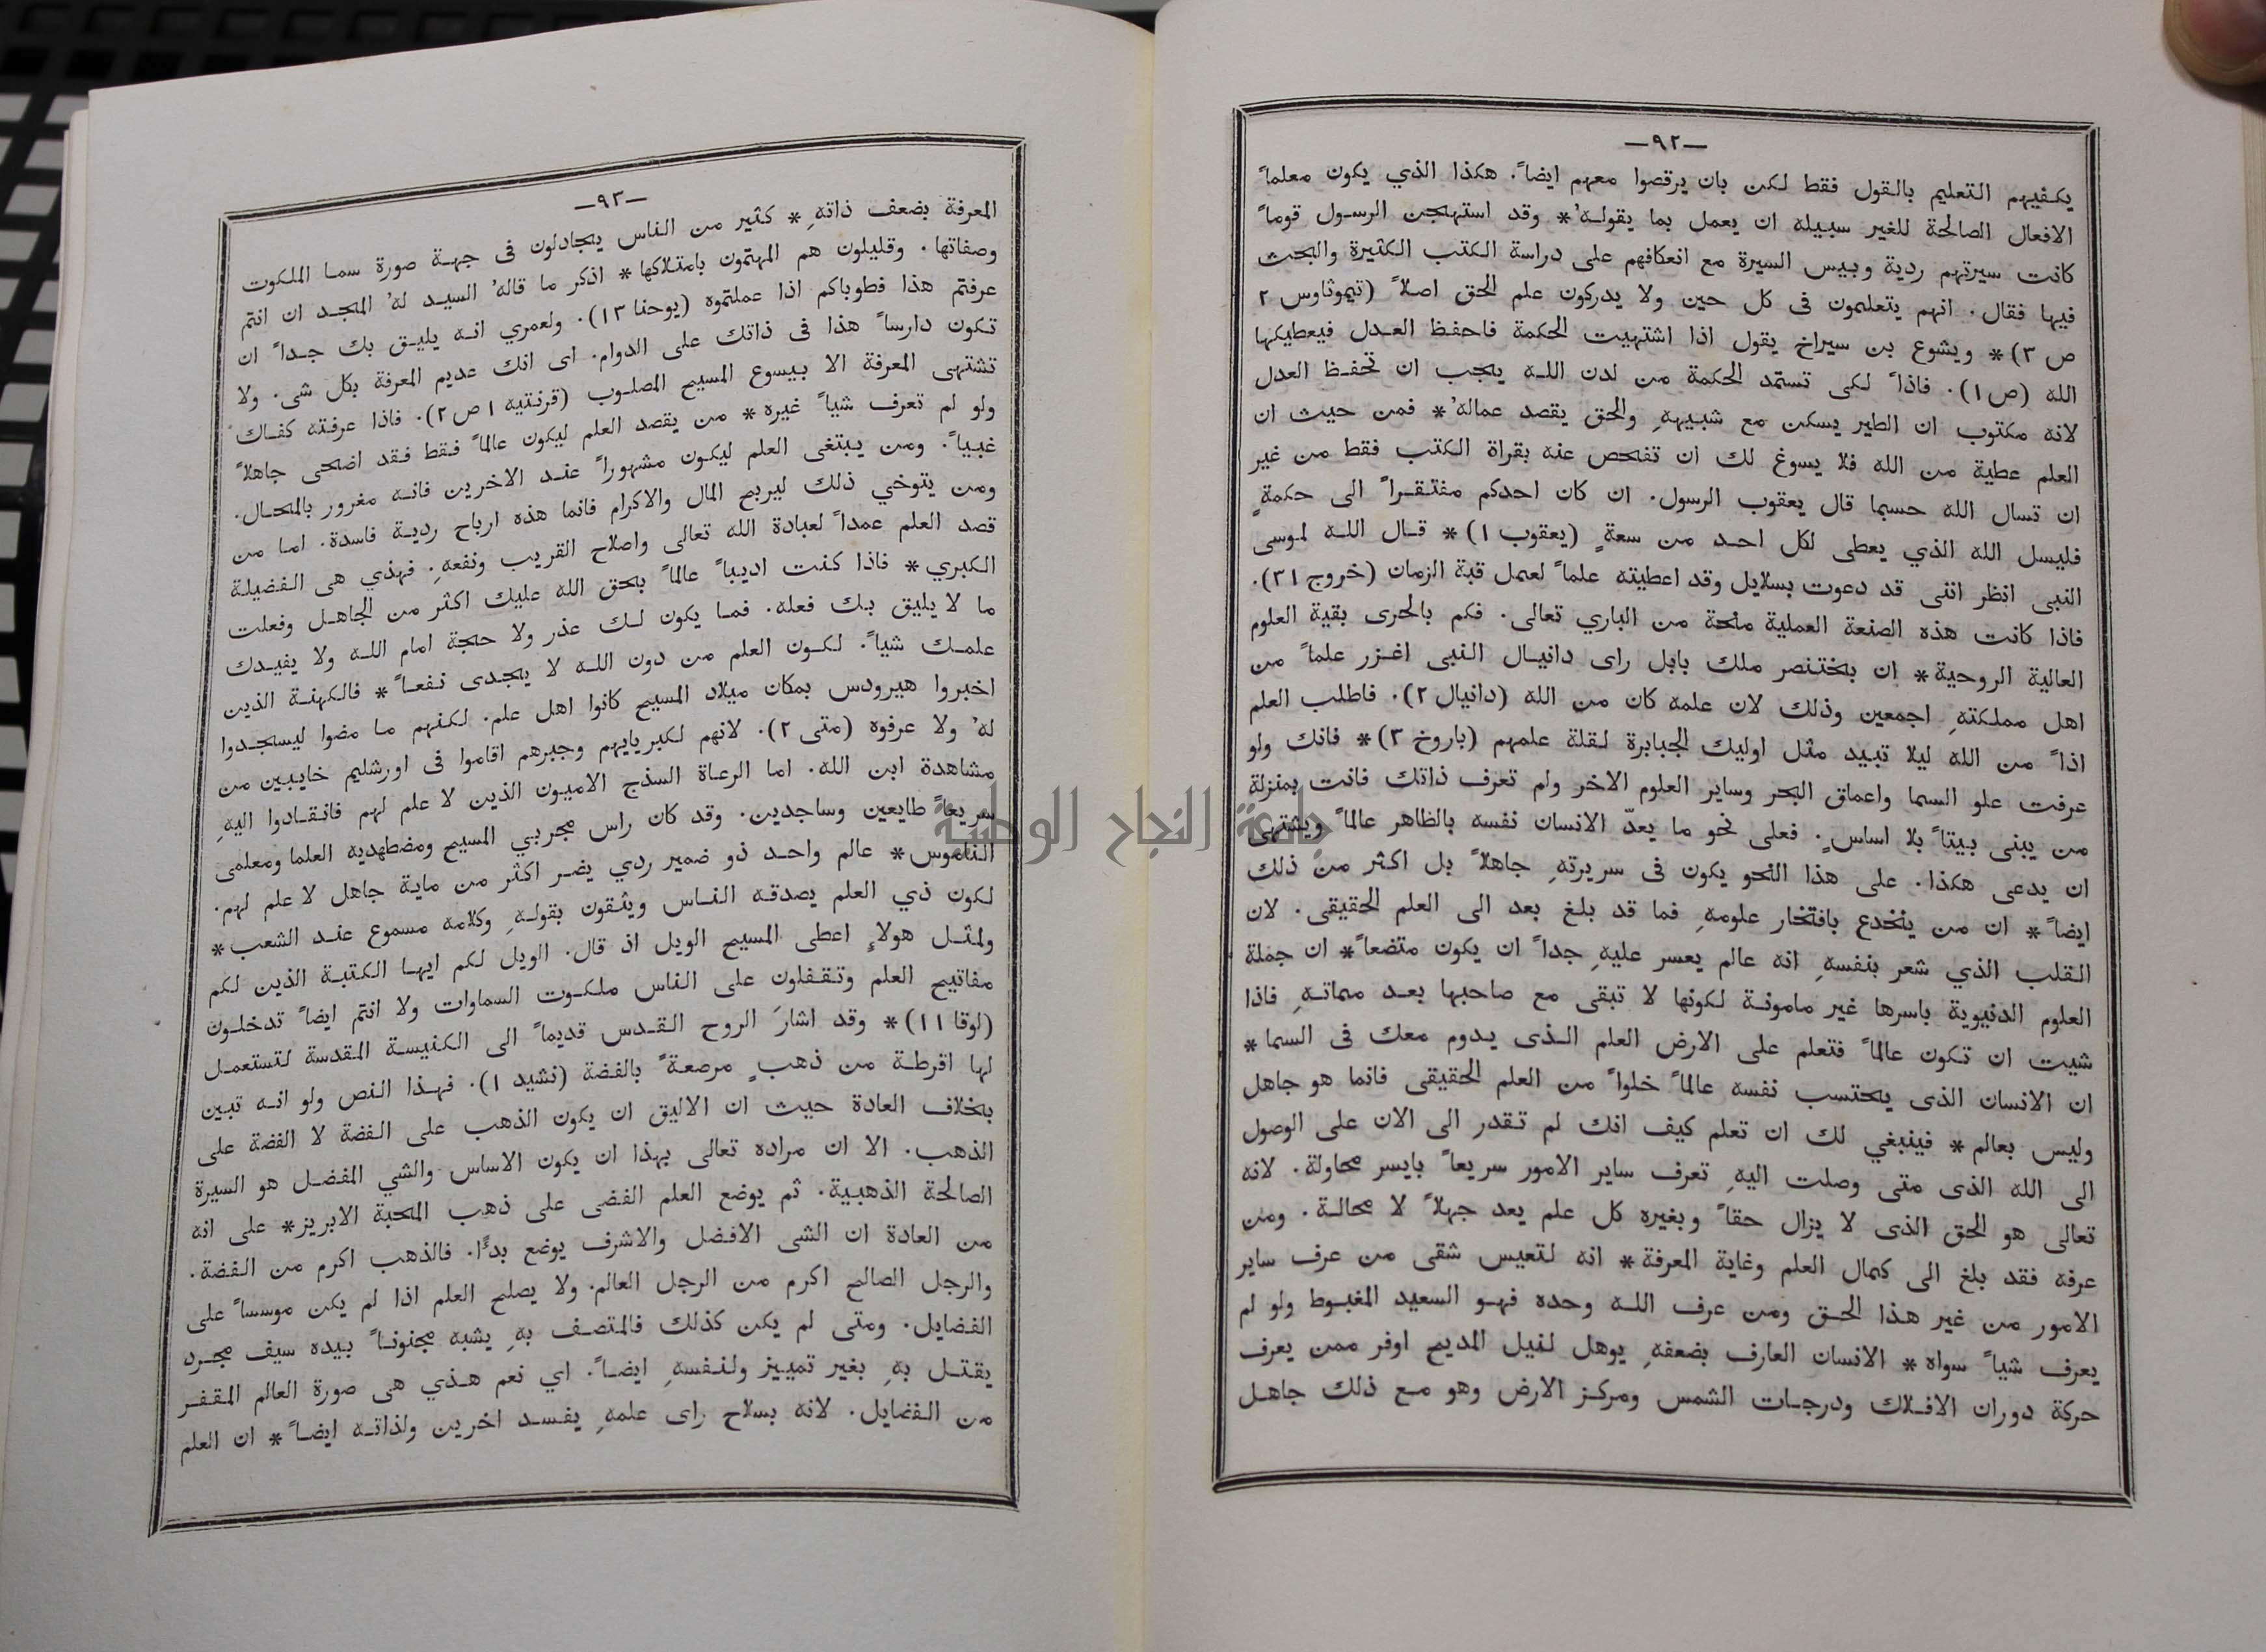 —٩٢—
يكفيهم التعليم بالقول فقط لكن بان يرقصوا معهم ايضاً. هكذا الذي يكون معلماً
الافعال الصالحة للغير سبيله ان يعمل بما يقوله* وقد استهجن الرسول قوماً
كانت سيرتهم ردية وبيس السيرة مع انعكافهم على دراسة الكتب الكثيرة والبحث
فيها فقال. انهم يتعلمون فى كل حين ولا يدركون علم الحق اصلاً (تيموثاوس ٢
ص ٣)* ويشوع بن سيراخ يقول اذا اشتهيت الحكمة فاحفظ العدل فيعطيكها
الله (ص ١). فاذاً لكى تستمد الحكمة من لدن الله يجب ان تحفظ العدل
لانه مكتوب ان الطير يسكن مع شبيههِ والحق يقصد عماله* فمن حيث ان
العلم عطية من الله فلا يسوغ لك ان تفحص عنه بقراة الكتب فقط من غير
ان تسال الله حسبما قال يعقوب الرسول. ان كان احدكم مفتقراً الى حكمةٍ
فليسل الله الذي يعطى لكل احد من سعةٍ (يعقوب ١)* قال الله لموسى
النبى انظر اننى قد دعوت بسلايل وقد اعطيته علماً لعمل قبة الزمان (خروج ٣١).
فاذا كانت هذه الصنعة العملية منحة من الباري تعالى. فكم بالحرى بقية العلوم
العالية الروحية* ان بختنصر ملك بابل راى دانيال النبى اغزر علماً من
اهل مملكتهِ اجمعين وذلك لان علمه كان من الله (دانيال ٢). فاطلب العلم
اذاً من الله ليلا تبيد مثل اوليك الجبابرة لقلة علمهم (باروخ ٣)* فانك ولو
عرفت علو السما واعماق البحر وساير العلوم الاخر ولم تعرف ذاتك فانت بمنزلة
من يبنى بيتاً بلا اساسٍ. فعلى نحو ما يعدّ الانسان نفسه بالظاهر عالماً ويشتهى
ان يدعى هكذا. على هذا النحو يكون فى سريرتهِ جاهلاً بل اكثر من ذلك
ايضاً* ان من ينخدع بافتخار علومهِ فما قد بلغ بعد الى العلم الحقيقى. لان
القلب الذي شعر بنفسهِ انه عالم يعسر عليهِ جداً ان يكون متضعاً* ان جملة
العلوم الدنيوية باسرها غير مامونة لكونها لا تبقى مع صاحبها بعد مماتهِ فاذا
شيت ان تكون عالماً فتعلم على الارض العلم الذى يدوم معك فى السما*
ان الانسان الذى يحتسب نفسه عالماً خلواً من العلم الحقيقى فانما هو جاهل
وليس بعالم* فينبغي لك ان تعلم كيف انك لم تقدر الى الان على الوصول
الى الله الذى متى وصلت اليهِ تعرف ساير الامور سريعاً بايسر محاولة. لانه
تعالى هو الحق الذى لا يزال حقاً وبغيره كل علم يعد جهلاً لا محالة. ومن
عرفه فقد بلغ الى كمال العلم وغاية المعرفة* انه لتعيس شقى من عرف ساير
الامور من غير هذا الحق ومن عرف الله وحده فهو السعيد المغبوط ولو لم
يعرف شياً سواه* الانسان العارف بضعفهِ يوهل لنيل المديح اوفر ممن يعرف
حركة دوران الافلاك ودرجات الشمس ومركز الارض وهو مع ذلك جاهل
—٩٣—
المعرفة بضعف ذاتهِ* كثير من الناس يجادلون فى جهة صورة سما الملكوت
وصفاتها. وقليلون هم المهتمون بامتلاكها* اذكر ما قاله السيد له المجد ان انتم
عرفتم هذا فطوباكم اذا عملتموه (يوحنا ١٣). ولعمري انه يليق بك جداً ان
تكون دارساً هذا فى ذاتك على الدوام. اى انك عديم المعرفة بكل شى. ولا
تشتهى المعرفة الا بيسوع المسيح المصلوب (قرنتيه ١ ص ٢). فاذا عرفته كفاك
ولو لم تعرف شياً غيره* من يقصد العلم ليكون عالماً فقط فقد اضحى جاهلاً
غبياً. ومن يبتغى العلم ليكون مشهوراً عند الاخرين فانه مغرور بالمحال.
ومن يتوخي ذلك ليربح المال والاكرام فانما هذه ارباح ردية فاسدة. اما من
قصد العلم عمداً لعبادة الله تعالى واصلاح القريب ونفعهِ. فهذي هى الفضيلة
الكبري* فاذا كنت اديباً عالماً بحق الله عليك اكثر من الجاهل وفعلت
ما لا يليق بك فعله. فما يكون لك عذر ولا حجة امام الله ولا يفيدك
علمك شياً. لكون العلم من دون الله لا يجدى نفعاً* فالكهنة الذين
اخبروا هيرودس بمكان ميلاد المسيح كانوا اهل علم. لكنهم ما مضوا ليسجدوا
له ولا عرفوه (متى ٢). لانهم لكبريايهم وجبرهم اقاموا فى اورشليم خايبين من
مشاهدة ابن الله. اما الرعاة السذج الاميون الذين لا علم لهم فانقادوا اليهِ
سريعاً طايعين وساجدين. وقد كان راس مجربي المسيح ومضطهديه العلما ومعلمى
الناموس* عالم واحد ذو ضمير ردي يضر اكثر من ماية جاهل لا علم لهم.
لكون ذي العلم يصدقه الناس ويثقون بقولهِ وكلامه مسموع عند الشعب*
ولمثل هولاءِ اعطى المسيح الويل اذ قال. الويل لكم ايها الكتبة الذين لكم
مفاتيح العلم وتقفلون على الناس ملكوت السماوات ولا انتم ايضاً تدخلون
(لوقا ١١)* وقد اشارَ الروح القدس قديماً الى الكنيسة المقدسة لتستعمل
لها اقرطة من ذهبٍ مرصعةً بالفضة (نشيد ١). فهذا النص ولو انه تبين
بخلاف العادة حيث ان الاليق ان يكون الذهب على الفضة لا الفضة على
الذهب. الا ان مراده تعالى بهذا ان يكون الاساس والشي المفضل هو السيرة
الصالحة الذهبية. ثم يوضع العلم الفضى على ذهب المحبة الابريز* على انه
من العادة ان الشى الافضل والاشرف يوضع بدءًا. فالذهب اكرم من الفضة.
والرجل الصالح اكرم من الرجل العالم. ولا يصلح العلم اذا لم يكن موسساً على
الفضايل. ومتى لم يكن كذلك فالمتصف بهِ يشبه مجنوناً بيده سيف مجرد
يقتل بهِ بغير تمييز ولنفسهِ ايضاً. اي نعم هذي هى صورة العالم المقفر
من الفضايل. لانه بسلاح راى علمهِ يفسد اخرين ولذاته ايضاً* ان العلم
جامعة النجاح الوطنية